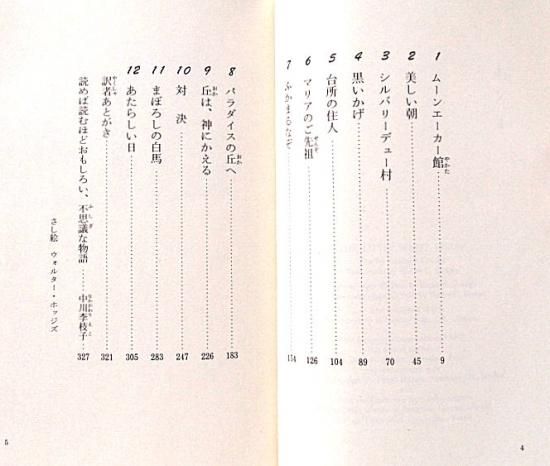 1 ムーンエーカー館 9
2 美しい朝 45
3 シルバリーデュー村 70
4 黒いかげ 89
5 台所の住人 104
6 マリアのご先祖 126
7 ふかまるなぞ 154
4
8 パラダイスの丘へ 183
9 丘は、神にかえる 226
10 対決 247
11 まぼろしの白馬 283
12 あたらしい日 305
訳者あとがき 321
読めば読むほどおもしろい、不思議な物語 中川李枝子 327
さし絵 ウォルター・ホッジズ
5